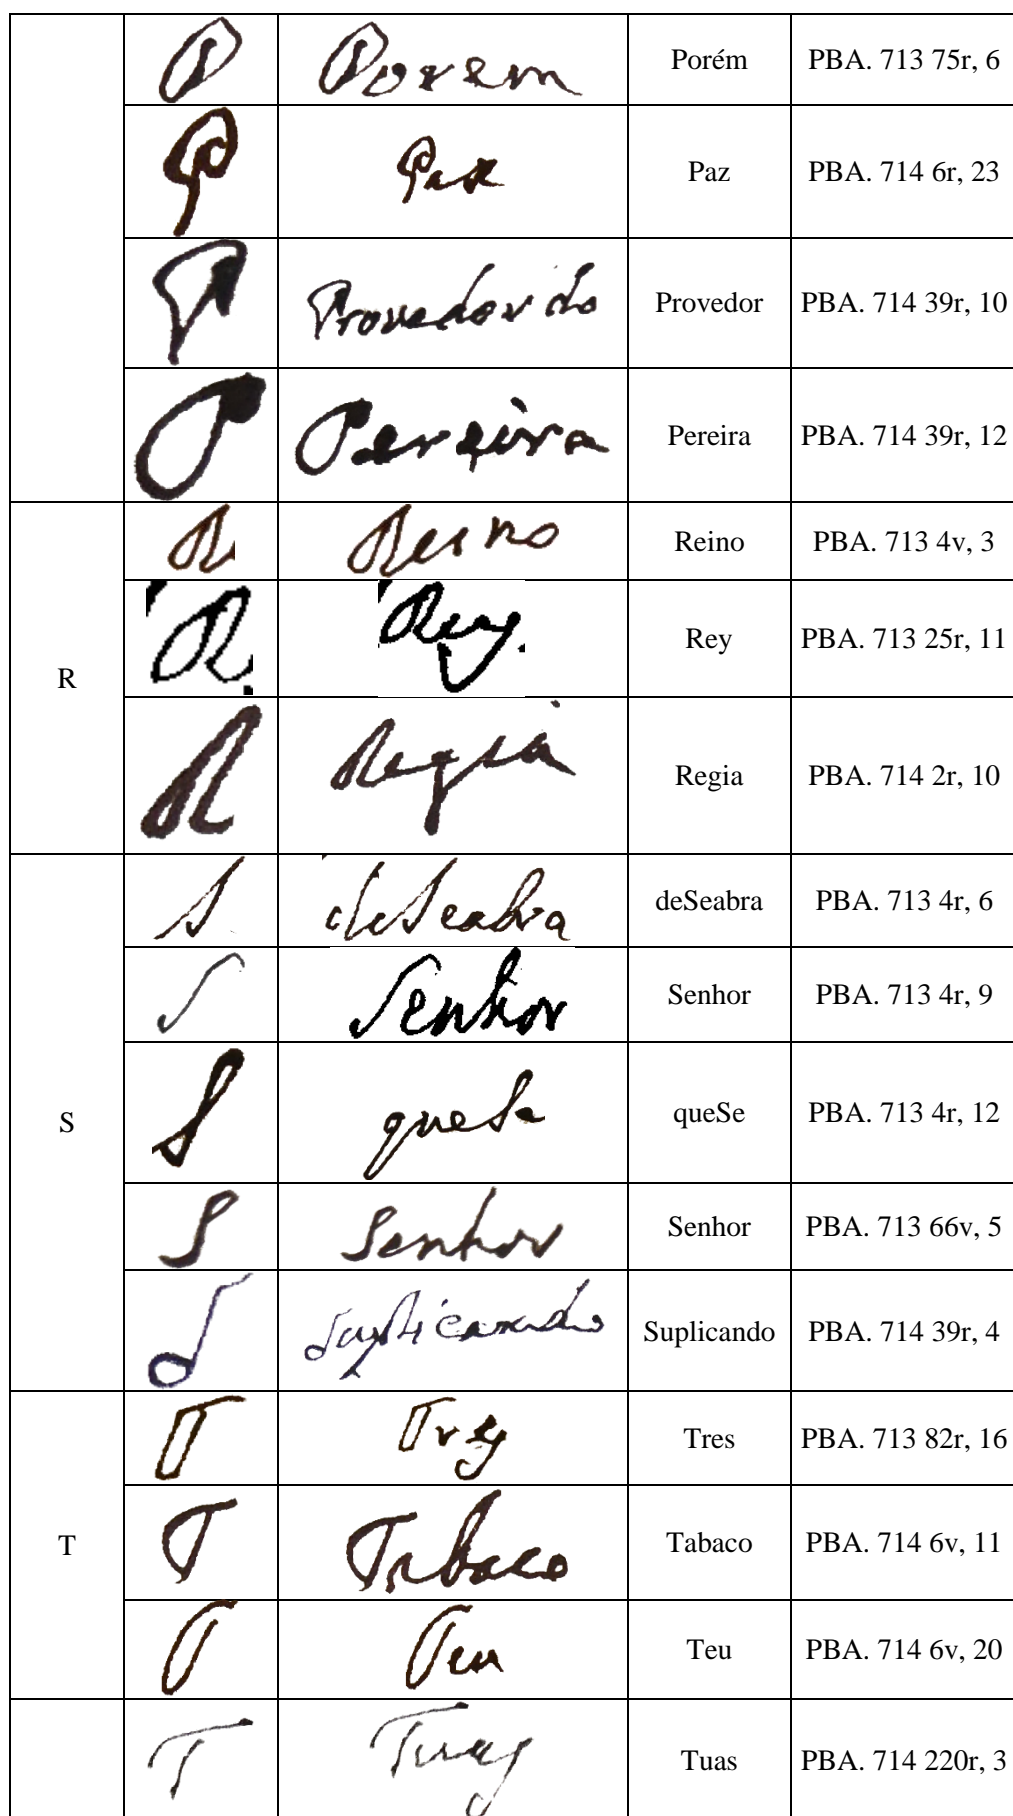 P Porem Porém PBA. 713 75r, 6
P Paz Paz PBA. 714 6r, 23
P Provedor do Provedor PBA. 714 39r, 10
P Pereira Pereira PBA. 714 39r, 12
R R Reino Reino PBA. 713 4v, 3
R Rey. Rey PBA. 713 25r, 11
R Regia Regia PBA. 714 2r, 10
S S deSeabra deSeabra PBA. 713 4r, 6
S Senhor Senhor PBA. 713 4r, 9
S queSe queSe PBA. 713 4r, 12
S Senhor Senhor PBA. 713 66v, 5
S Suplicando Suplicando PBA. 714 39r, 4
T T Tres Tres PBA. 713 82r, 16
T Tabaco Tabaco PBA. 714 6v, 11
T Teu Teu PBA. 714 6v, 20
T Tuas Tuas PBA. 714 220r, 3